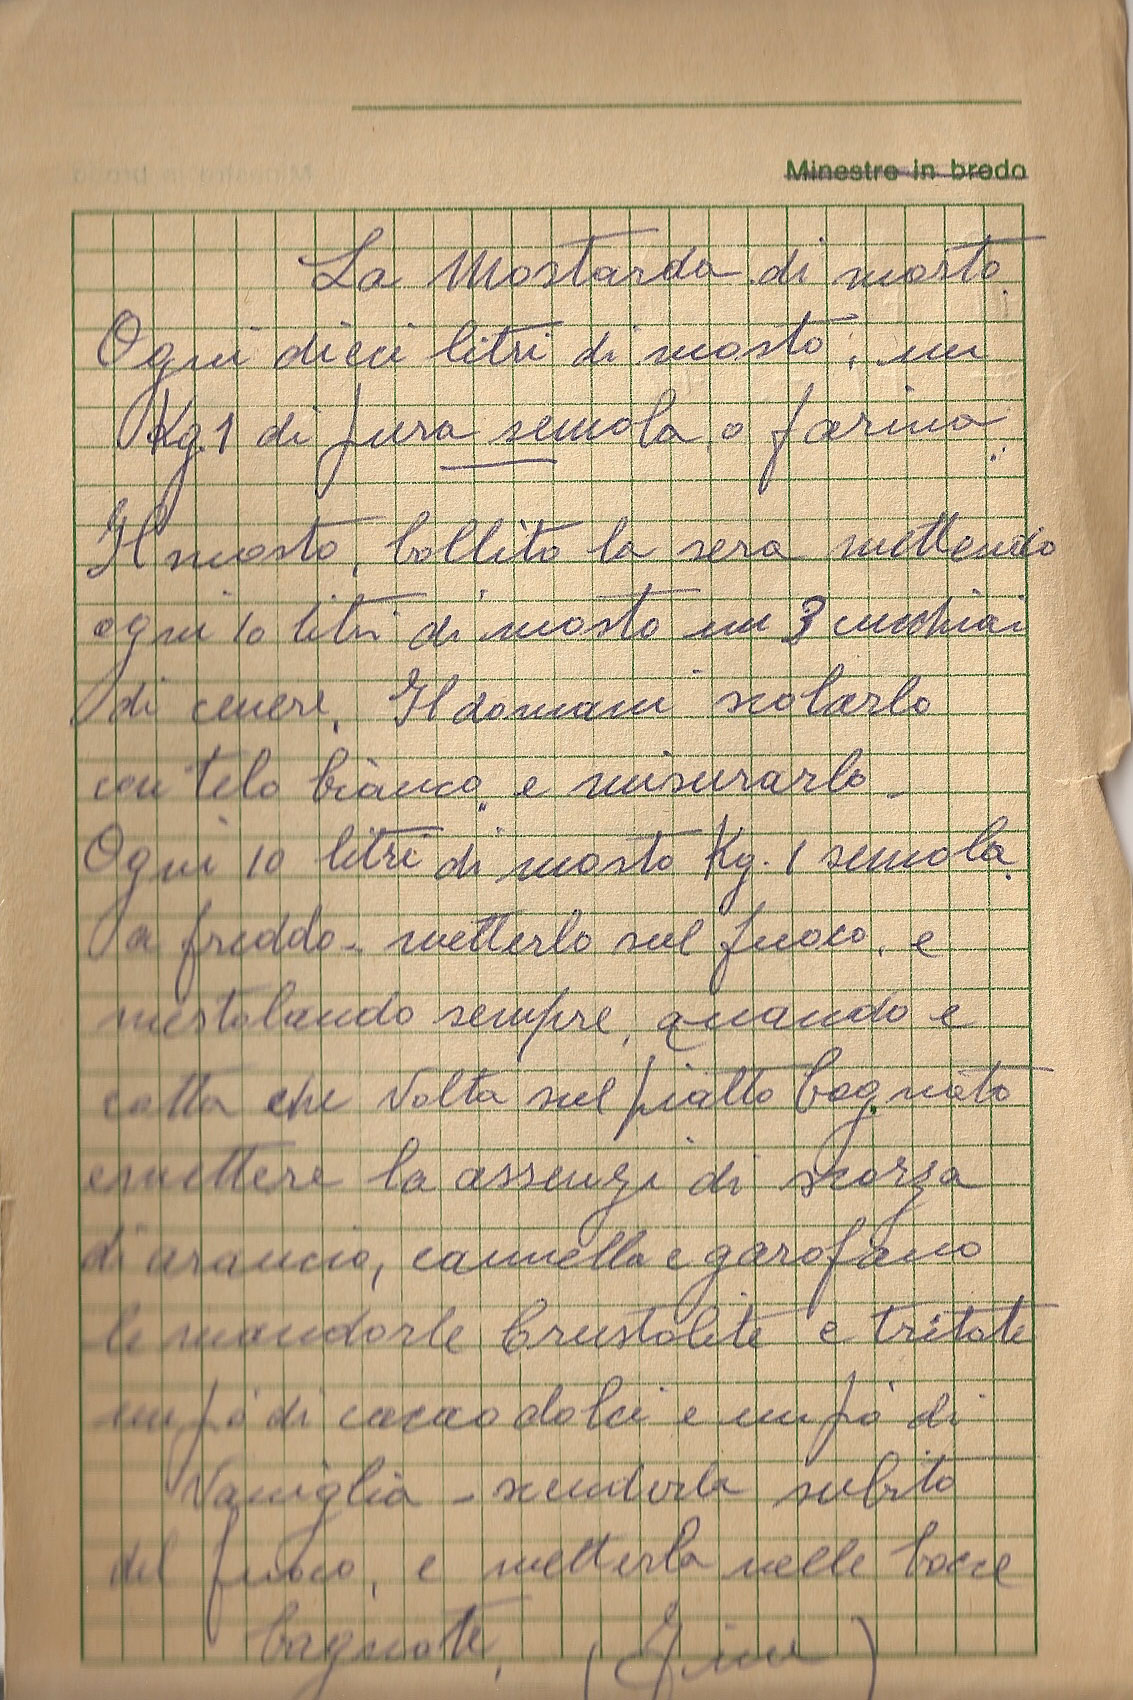 Minestre in brodo
La Mostarda di mosto.
Ogni dieci litri di mosto; un
Kg. 1 di pura semola o farina.
Il mosto, bollito la sera mettendo
ogni 10 litri di mosto un 3 cucchiai
di cenere. Il domani scolarlo
con telo bianco e misurarlo -
Ogni 10 litri di mosto Kg. 1 semola.
a freddo - metterlo sul fuoco, e
mestolando sempre, quando e
cotta che volta sul piatto bagnato
emettere la assenzi di scorza
di arancio, cannella e garofano
le mandorle brustolite e tritate
un pò di cacao dolci e un pò di
Vaniglia - scenderla subito
del fuoco, e metterla nelle bocce
bagnate. ( )